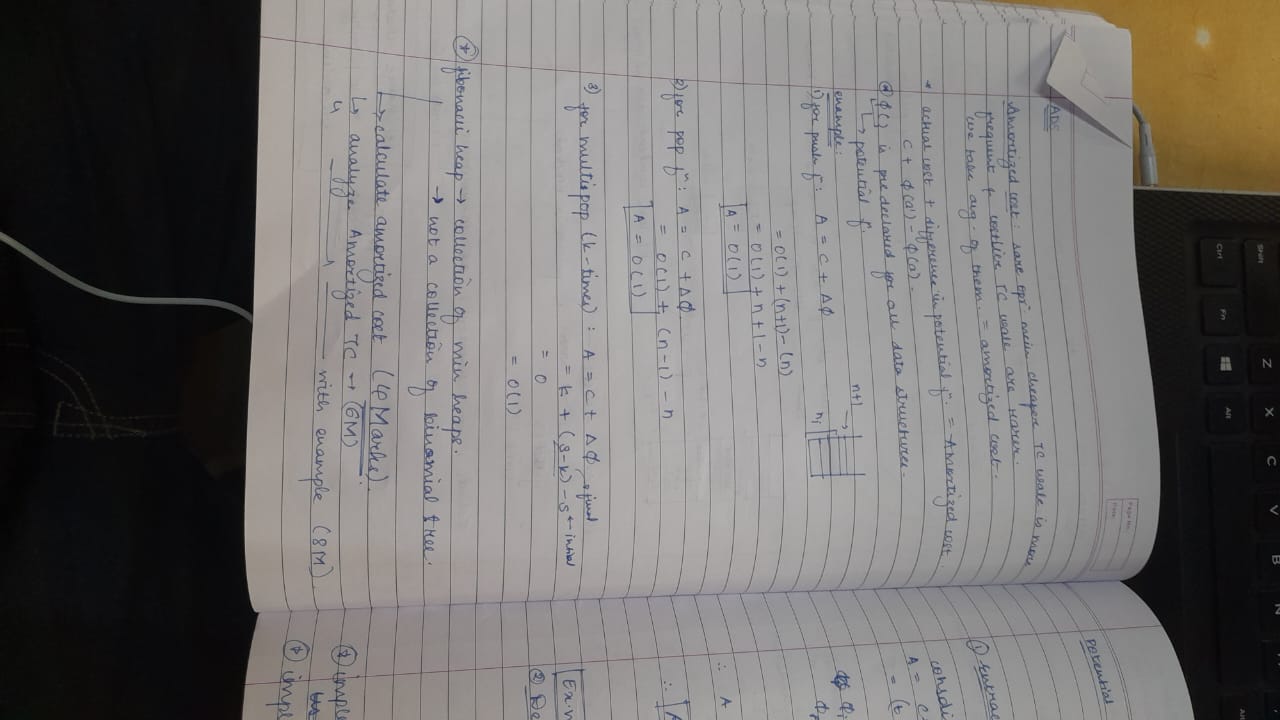 ADS
Amortized cost : rare opr mein cheaper TC wale is more
frequent & costlier TC wale are rarer.
we take avg. of them. = amortized cost.
* actual cost + difference in potential fⁿ. = Amortized cost.
C + ϕ(a') - ϕ(a).
* ϕ( ) is predeclared for all data structures.
↳ potential fⁿ.
example:
1) for push fⁿ: A = C + Δϕ
= O(1) + (n+1) - (n)
= O(1) + n + 1 - n
A = O(1)
n+1 →
n
2) for pop fⁿ: A = C + Δϕ
= O(1) + (n-1) - n
A = O(1)
3) for multipop (k-times) : A = C + Δϕ
= k + (s-k) - s ← initial
final
= 0
= O(1)
* fibonacci heap → collection of min heaps.
→ not a collection of binomial tree.
↳ calculate amortized cost (4 Marks).
↳ analyze Amortized TC → (6M)
↳ — " — " — with example (8M)
Potential
①
consid
A = C
= (t
ϕ
∴ A
∴ A
Ex.n
② De
* imple
* impl
Page No.
Date
Shift
Ctrl
Fn
Alt
Z
X
C
V
B
N